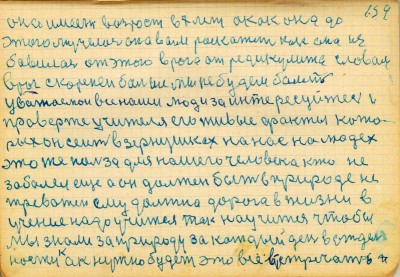 659
она имеет возрост 87 лет а как она до
этого мучелась она вам расскажит как она из
бавилась от этого врого от редикулита словом
врог скоренен больше ты не будем болеть
уважаемои все наши люди заинтересуйтесь и
проверте учителя его живые факты кото-
рых он сеит в зернушках на нас на людех
это же польза для нашего человека кто не
заболел еще а он должен быть в природе не
тревожен ему должна дорога в жизни в
учение надо учится так научится чтобы
мы знали за природу за каждый день
ности как нужно будет это все встречать в